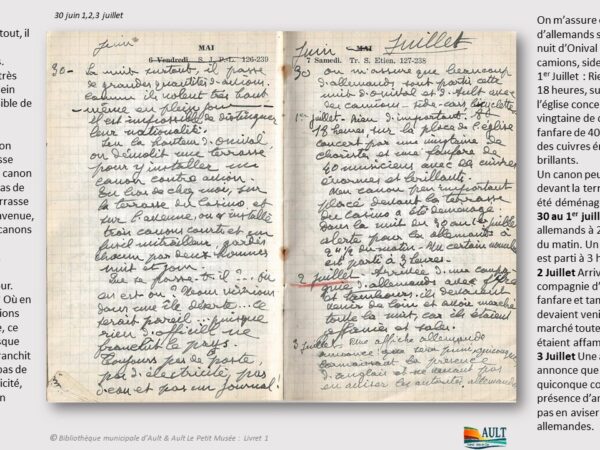 30 juin 1,2,3 juillet
tout, il
s.
très
ein
sible de
on
sse
canon
as de
rrasse
venue,
canons
our.
Où en
ions
, ce
sque
ranchit
pas de
icité,
n
Juin
MAI
6 Vendredi. S. J. P.-L. 126-239
30 - La nuit surtout, il passe
de grandes quantités d'avions
comme ils volent très haut
même en plein jour
il est impossible de distinguer
leur nationalité.
Sur la hauteur d'Onival,
on démolit une terrasse
pour y installer un
canon contre avion.
Du bas de chez moi, sur
la terrasse du casino, et
sur l'avenue, on a installé
trois canons court et un
fusil mitrailleur, gardés
chacun par deux hommes
nuit et jour.
Que se passe-t-il ... Où
en est-on ? Nous vivrions
dans une île déserte ... ce
serait pareil ... puisque
rien d'officiel ne
franchit le pays.
Toujours pas de poste,
pas d'électricité, pas
d'eau et pas un journal.
Juin MAI Juillet
7 Samedi. Tr. S. Etien. 127-238
30 on m'assure que beaucoup
d'allemands sont partis cette
nuit d'Onival et d'Ault avec
des camions, side-cars, bicyclettes
1er juillet - Rien d'important. à
18 heures sur la place de l'église
concert par une vingtaine de
choriste et une fanfare de
40 musiciens avec des cuivres
énormes et brillants.
Un canon peu important
placé devant la terrasse
du casino a été déménagé
dans la nuit du 30 au 1er juillet
alerte pour les allemands à
2 h ½ du matin. Un certain nombre
est parti à 3 heures.
2 juillet Arrivée d'une compa-
gnie d'allemands avec fifre
et tambours. ils devaient
venir de loin et avoir marché
toute la nuit, car ils étaient
affamés et sales.
3 juillet. Une affiche allemande
annonce que sera puni, quiconque
connaissant la présence
d'anglais et ne venant pas
en aviser les autorités allemandes.
On m'assure
d'allemands s
nuit d'Onival
camions, side
1er Juillet : Rie
18 heures, su
l'église conce
vingtaine de c
fanfare de 40
des cuivres én
brillants.
Un canon peu
devant la terr
été déménag
30 au 1er juill
allemands à 2
du matin. Un
est parti à 3 h
2 Juillet Arriv
compagnie d'
fanfare et tan
devaient veni
marché toute
étaient affam
3 Juillet Une a
annonce que
quiconque co
présence d'an
pas en aviser
allemandes.
© Bibliothèque municipale d'Ault & Ault Le Petit Musée : Livret 1
AULT